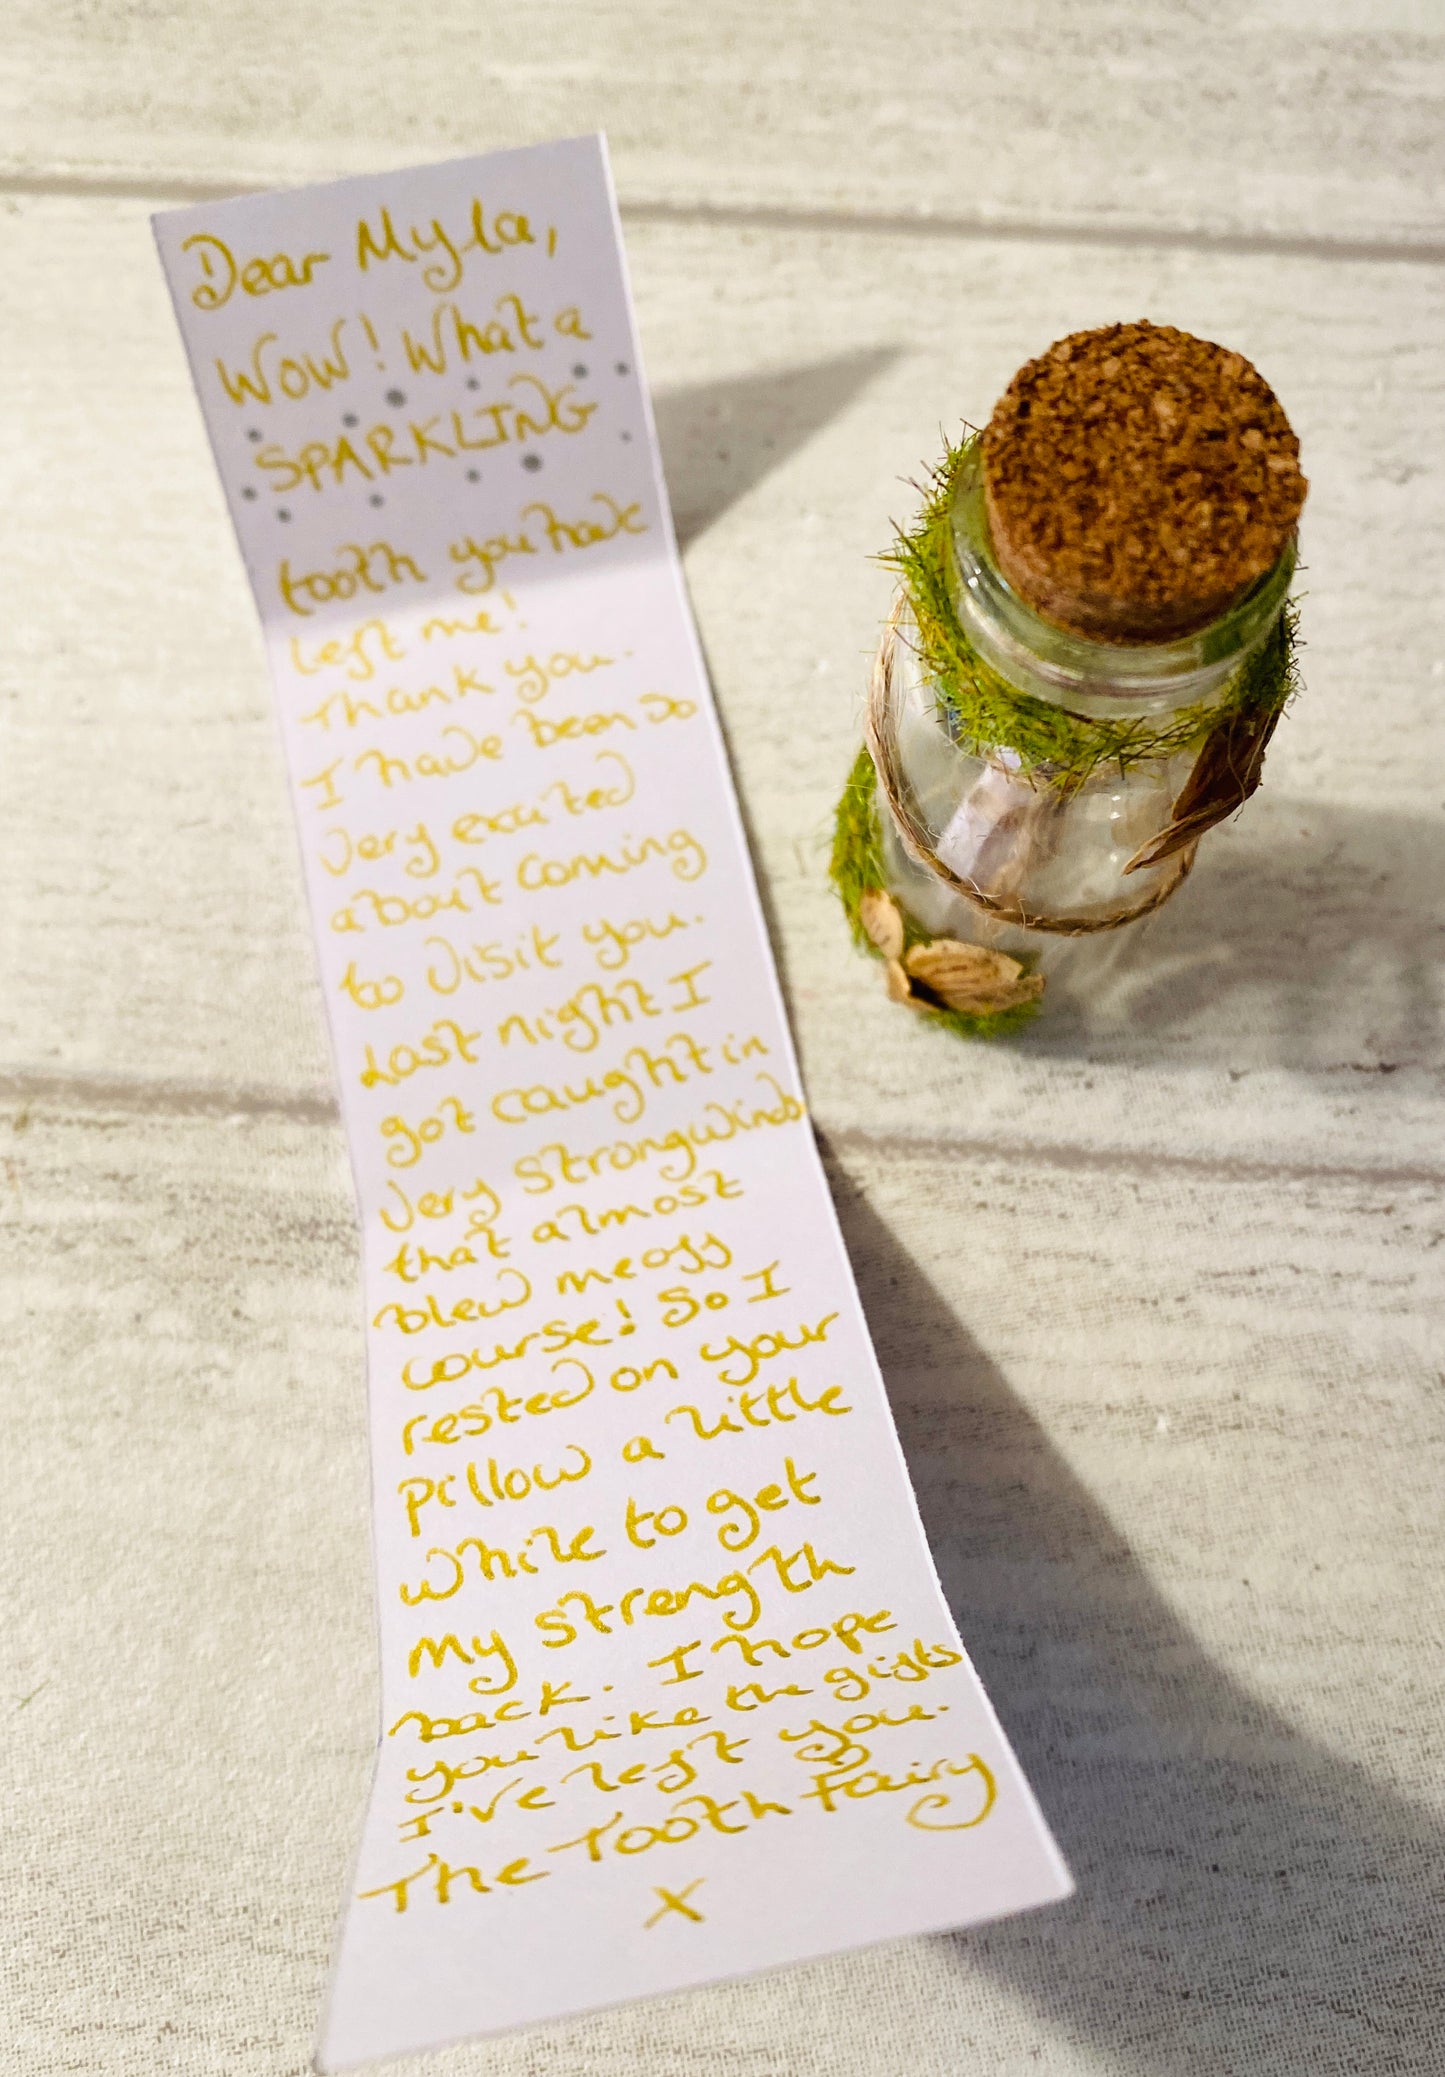 Dear Myla,
WOW! What a
SPARKLING
tooth you have
left me!
Thank you.
I have been so
very excited
about coming
to visit you.
Last night I
got caught in
very strong winds
that almost
blew me off
course! So I
rested on your
pillow a little
while to get
my strength
back. I hope
you like the gifts
I've left you.
The Tooth Fairy
X